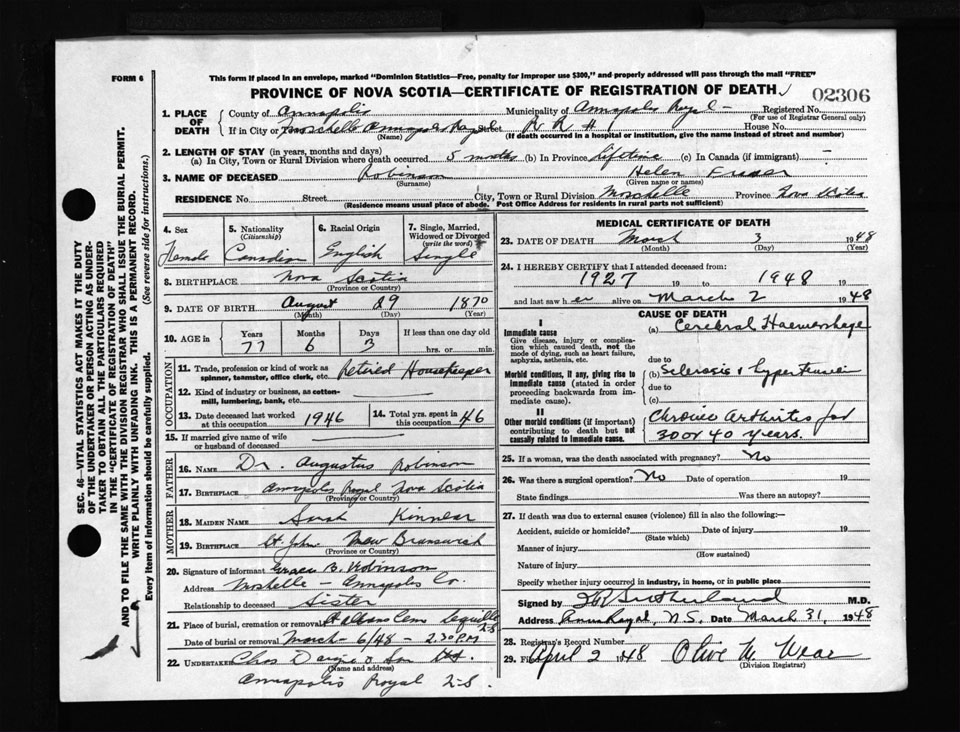 FORM 6
This form if placed in an envelope, marked "Dominion Statistics—Free, penalty for improper use $300," and properly addressed will pass through the mail "FREE"
PROVINCE OF NOVA SCOTIA—CERTIFICATE OF REGISTRATION OF DEATH
02306
1. PLACE OF DEATH
County of Annapolis Municipality of Annapolis Royal - Registered No.
(For use of Registrar General only)
If in City or Moschelle Annapolis Royal Street R R # 1 House No.
(Name) (If death occurred in a hospital or institution, give the name instead of street and number)
2. LENGTH OF STAY (in years, months and days)
(a) In City, Town or Rural Division where death occurred 5 months (b) In Province Lifetime (c) In Canada (if immigrant) -
3. NAME OF DECEASED Robinson Helen Fraser
(Surname) (Given name or names)
RESIDENCE No. Street City, Town or Rural Division Moschelle Province Nova Scotia
(Residence means usual place of abode. Post Office Address for residents in rural parts not sufficient)
4. Sex
Female
5. Nationality
(Citizenship)
Canadian
6. Racial Origin
English
7. Single, Married, Widowed or Divorced
(write the word)
Single
8. BIRTHPLACE Nova Scotia
(Province or Country)
9. DATE OF BIRTH August 29 1870
(Month) (Day) (Year)
10. AGE in
Years Months Days If less than one day old
77 6 3 hrs. or min.
OCCUPATION
11. Trade, profession or kind of work as spinner, teamster, office clerk, etc. Retired Housekeeper
12. Kind of industry or business, as cotton-mill, lumbering, bank, etc.
13. Date deceased last worked at this occupation 1946
14. Total yrs. spent in this occupation 46
15. If married give name of wife or husband of deceased
FATHER
16. NAME Dr. Augustus Robinson
17. BIRTHPLACE Annapolis Royal Nova Scotia
(Province or Country)
MOTHER
18. MAIDEN NAME Sarah Kinnear
19. BIRTHPLACE St. John New Brunswick
(Province or Country)
20. Signature of informant B. Robinson
Address Moshelle - Annapolis Co.
Relationship to deceased Sister
21. Place of burial, cremation or removal St Albans Cem Lequille N.S
Date of burial or removal March - 6/48 - 2.30 PM
22. Undertaker Chas & Son
(Name and address)
Annapolis Royal N.S.
MEDICAL CERTIFICATE OF DEATH
23. DATE OF DEATH March 3 1948
(Month) (Day) (Year)
24. I HEREBY CERTIFY that I attended deceased from:
1927 19 to 1948 19
and last saw her alive on March 2 1948
CAUSE OF DEATH
I
Immediate cause (a) Cerebral Haemorrhage
Give disease, injury or complication which caused death, not the mode of dying, such as heart failure, asphyxia, asthenia, etc.
due to
Morbid conditions, if any, giving rise to immediate cause (stated in order proceeding backwards from immediate cause).
(b) Sclerosis & hypertension
due to
(c)
II
Other morbid conditions (if important) contributing to death but not causally related to immediate cause.
Chronic Arthritis for
30 or 40 years.
25. If a woman, was the death associated with pregnancy? No
26. Was there a surgical operation? No Date of operation 19
State findings Was there an autopsy?
27. If death was due to external causes (violence) fill in also the following:—
Accident, suicide or homicide? Date of injury 19
(State which)
Manner of injury
(How sustained)
Nature of injury
Specify whether injury occurred in industry, in home, or in public place
Signed by Sutherland M.D.
Address Anna Royal, N.S. Date March 31, 1948
28. Registrar's Record Number
29. Filed April 2 1948 Olive M.
(Division Registrar)
SEC. 46—VITAL STATISTICS ACT MAKES IT THE DUTY
OF THE UNDERTAKER OR PERSON ACTING AS UNDER-
TAKER TO OBTAIN ALL THE PARTICULARS REQUIRED
IN THE "CERTIFICATE OF REGISTRATION OF DEATH"
AND TO FILE THE SAME WITH THE DIVISION REGISTRAR WHO SHALL ISSUE THE BURIAL PERMIT.
WRITE PLAINLY WITH UNFADING INK. THIS IS A PERMANENT RECORD.
Every item of information should be carefully supplied. (See reverse side for instructions.)